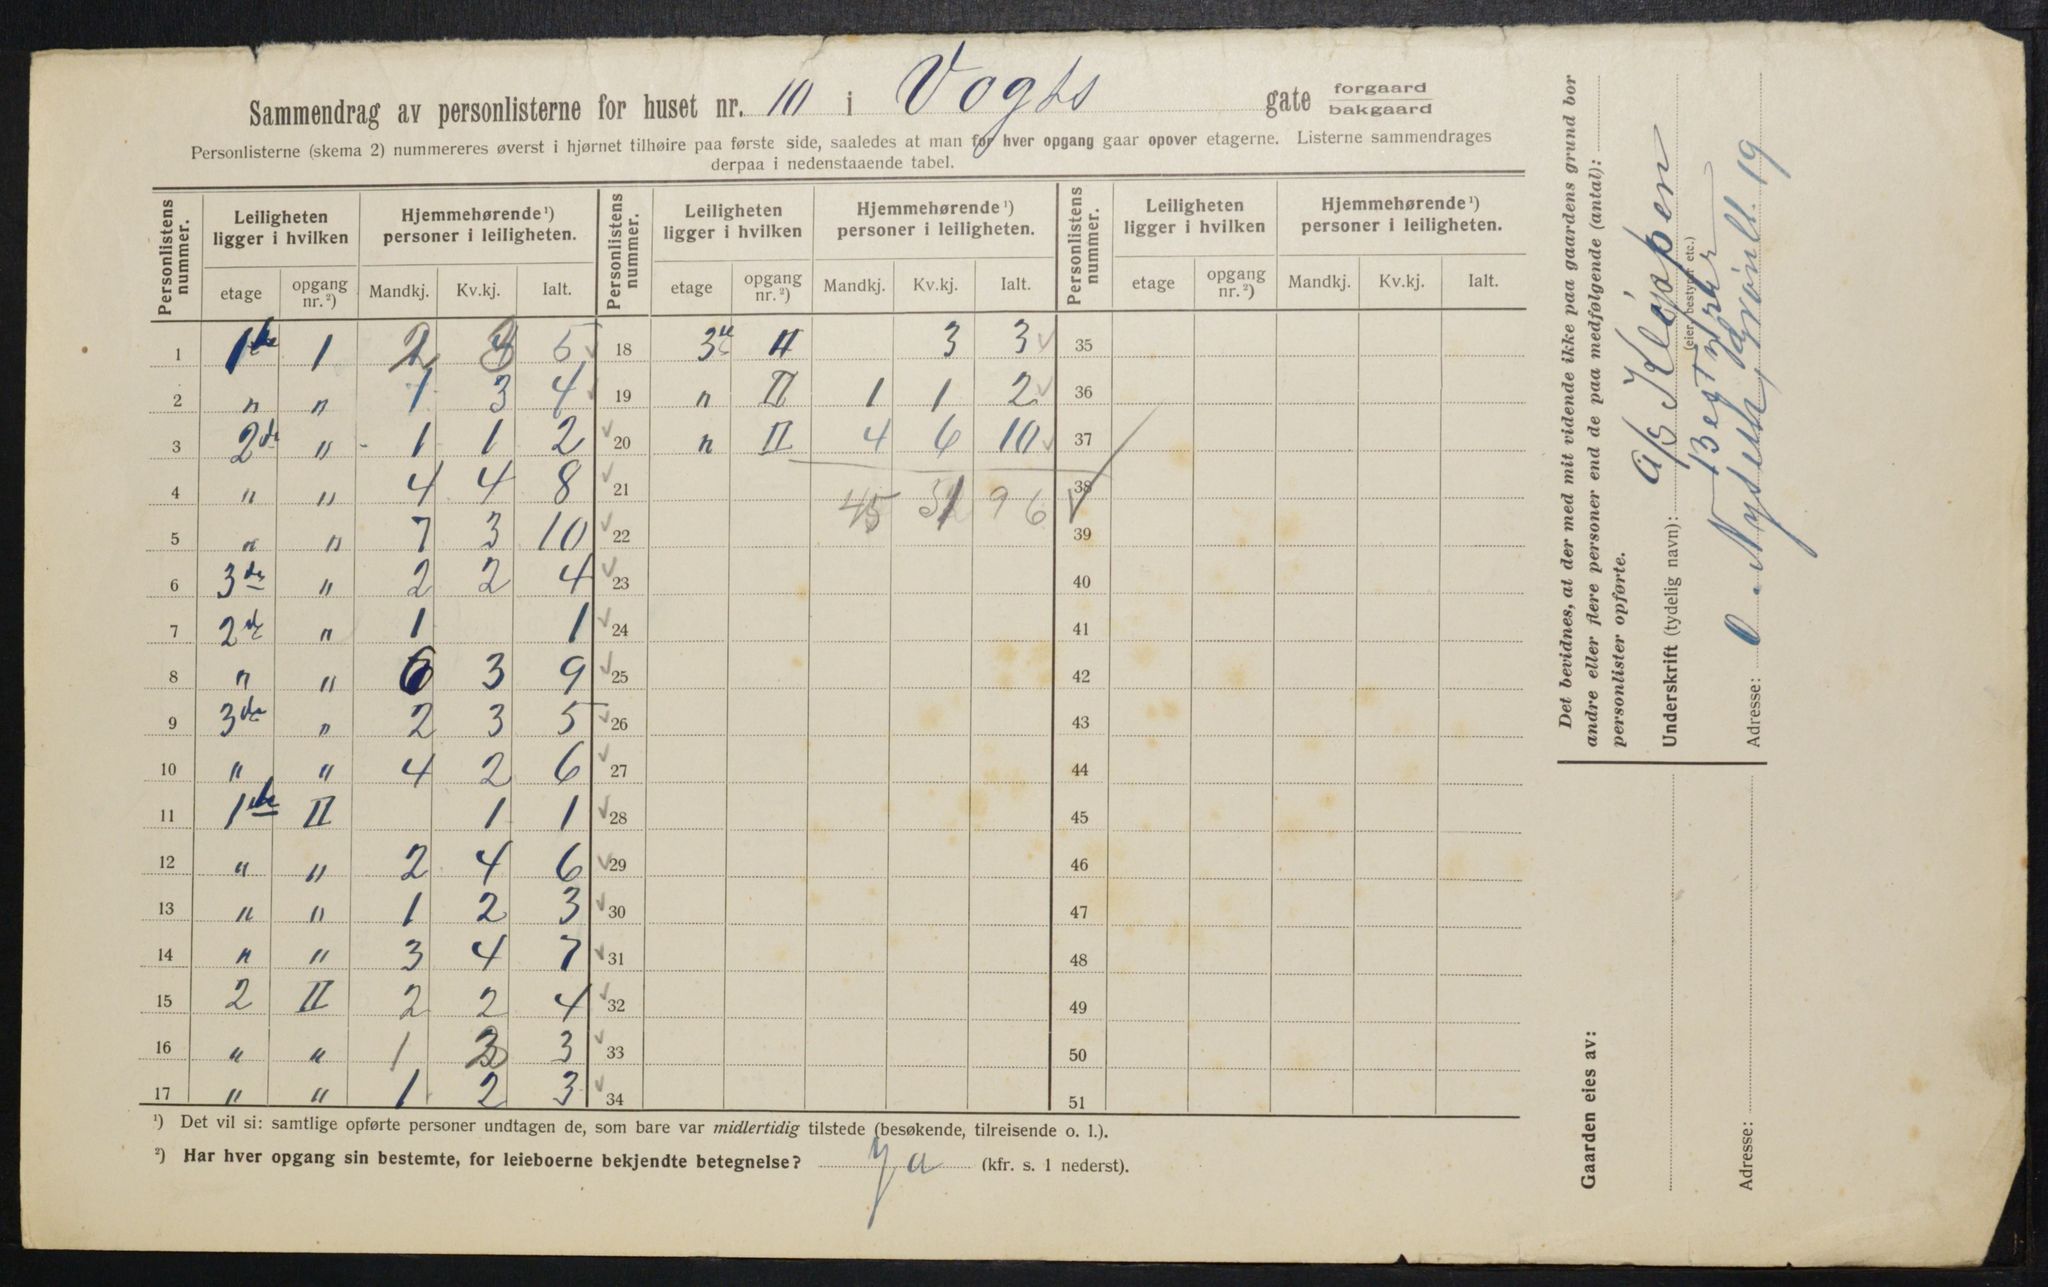 Sammendrag av personlisterne for huset nr. 10 i Vogts gate forgaard bakgaard
Personlisterne (skema 2) nummereres øverst i hjørnet tilhøire paa første side, saaledes at man for hver opgang gaar opover etagerne. Listerne sammendrages
derpaa i nedenstaaende tabel.
Personlistens nummer. Leiligheten ligger i hvilken Hjemmehørende¹) personer i leiligheten. Personlistens nummer. Leiligheten ligger i hvilken Hjemmehørende¹) personer i leiligheten. Personlistens nummer. Leiligheten ligger i hvilken Hjemmehørende¹) personer i leiligheten.
etage opgang nr.²) Mandkj. Kv.kj. Ialt. etage opgang nr.²) Mandkj. Kv.kj. Ialt. etage opgang nr.²) Mandkj. Kv.kj. Ialt.
1 1ste 1 2 3 5 18 3 II 3 3 35
2 " " 1 3 4 19 " II 1 1 2 36
3 2de " 1 1 2 20 " II 4 6 10 37
4 " " 4 4 8 21 45 51 96 38
5 " " 7 3 10 22 39
6 3de " 2 2 4 23 40
7 2de " 1 1 24 41
8 " " 6 3 9 25 42
9 3de " 2 3 5 26 43
10 " " 4 2 6 27 44
11 1ste II 1 1 28 45
12 " " 2 4 6 29 46
13 " " 1 2 3 30 47
14 " " 3 4 7 31 48
15 2 II 2 2 4 32 49
16 " " 1 2 3 33 50
17 " " 1 2 3 34 51
¹) Det vil si: samtlige opførte personer undtagen de, som bare var midlertidig tilstede (besøkende, tilreisende o. l.).
²) Har hver opgang sin bestemte, for leieboerne bekjendte betegnelse? Ja (kfr. s. 1 nederst).
Det bevidnes, at der med mit vidende ikke paa gaardens grund bor
andre eller flere personer end de paa medfølgende (antal):
personlister opførte.
A/S Kløppen
Underskrift (tydelig navn):
(eier, bestyrer etc.)
Adresse: 19
Gaarden eies av:
Adresse: